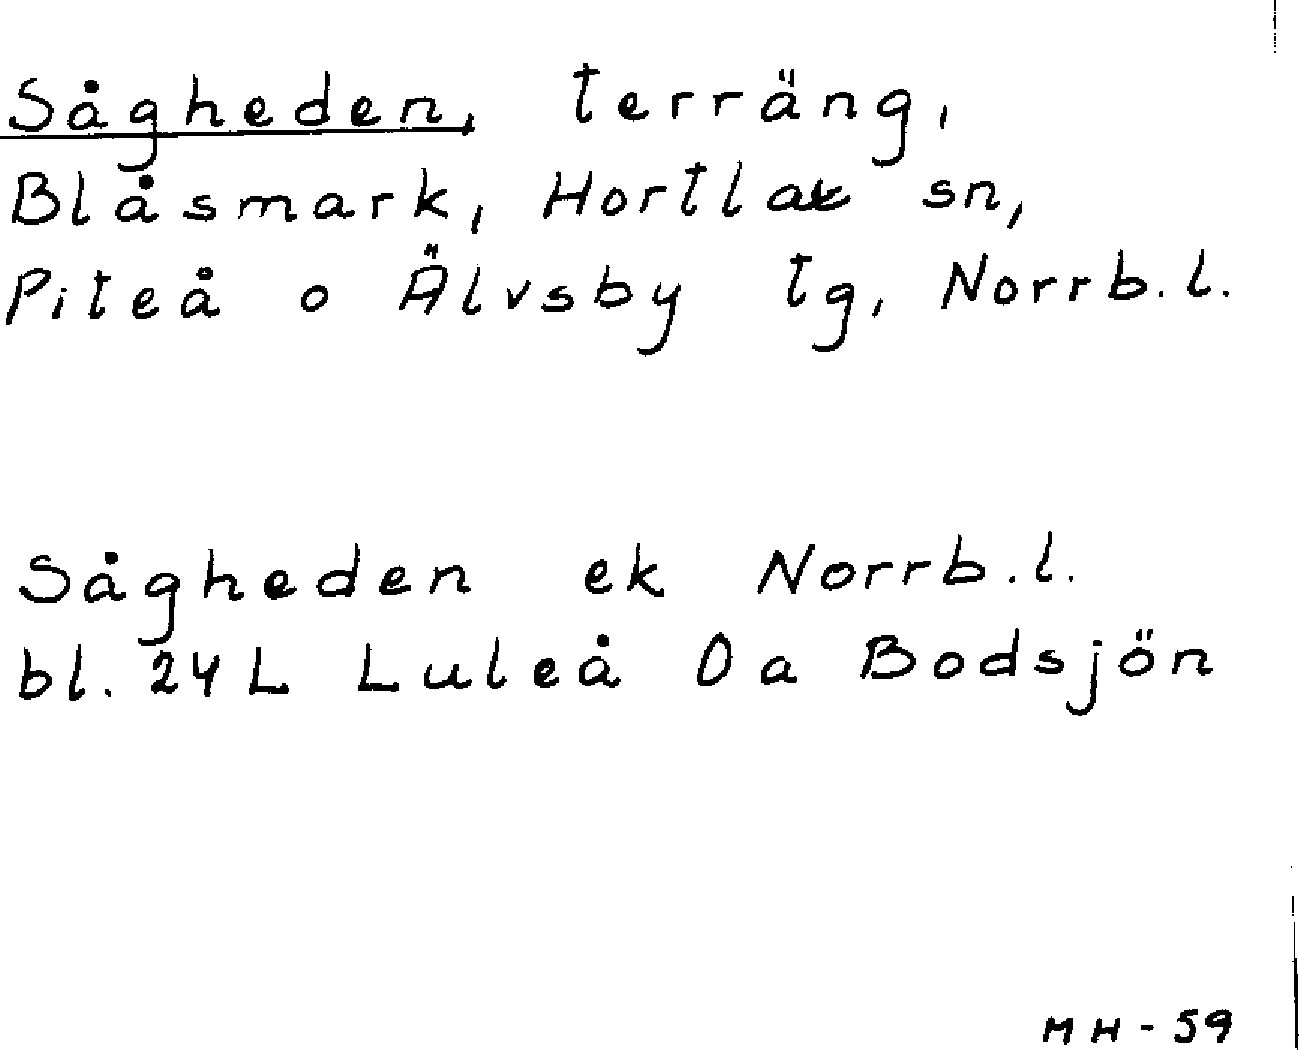 Sågheden, terräng,
Blåsmark, Hortlax sn,
Piteå o Älvsby tg, Norrb.l.
Sågheden ek Norrb.l.
bl. 24L Luleå 0a Bodsjön
MH-59